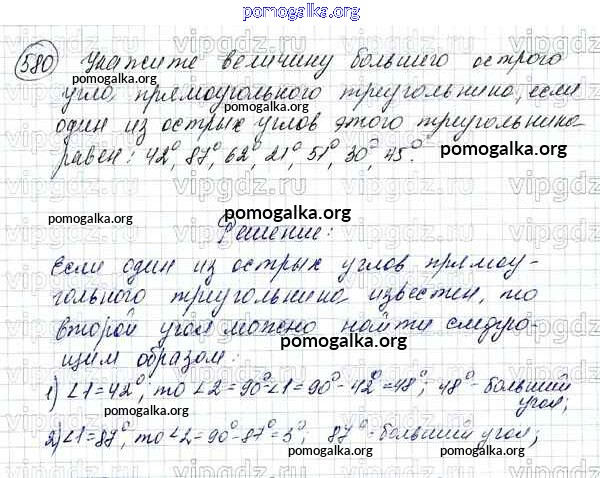 pomogalka.org
580 Укажите величину большего острого
pomogalka.org
угла прямоугольного треугольника, если
pomogalka.org
один из острых углов этого треугольника
равен: 42°, 87°, 62°, 21°, 51°, 30°, 45°.
pomogalka.org
pomogalka.org
pomogalka.org
Решение:
Если один из острых углов прямоу-
гольного треугольника известен, то
второй угол можно найти следую-
щим образом:
pomogalka.org
1) ∠1=42°, то ∠2=90°-∠1=90°-42°=48°; 48°-больший
угол;
pomogalka.org
2) ∠1=87°, то ∠2=90°-87°=3°; 87°-больший угол;
pomogalka.org